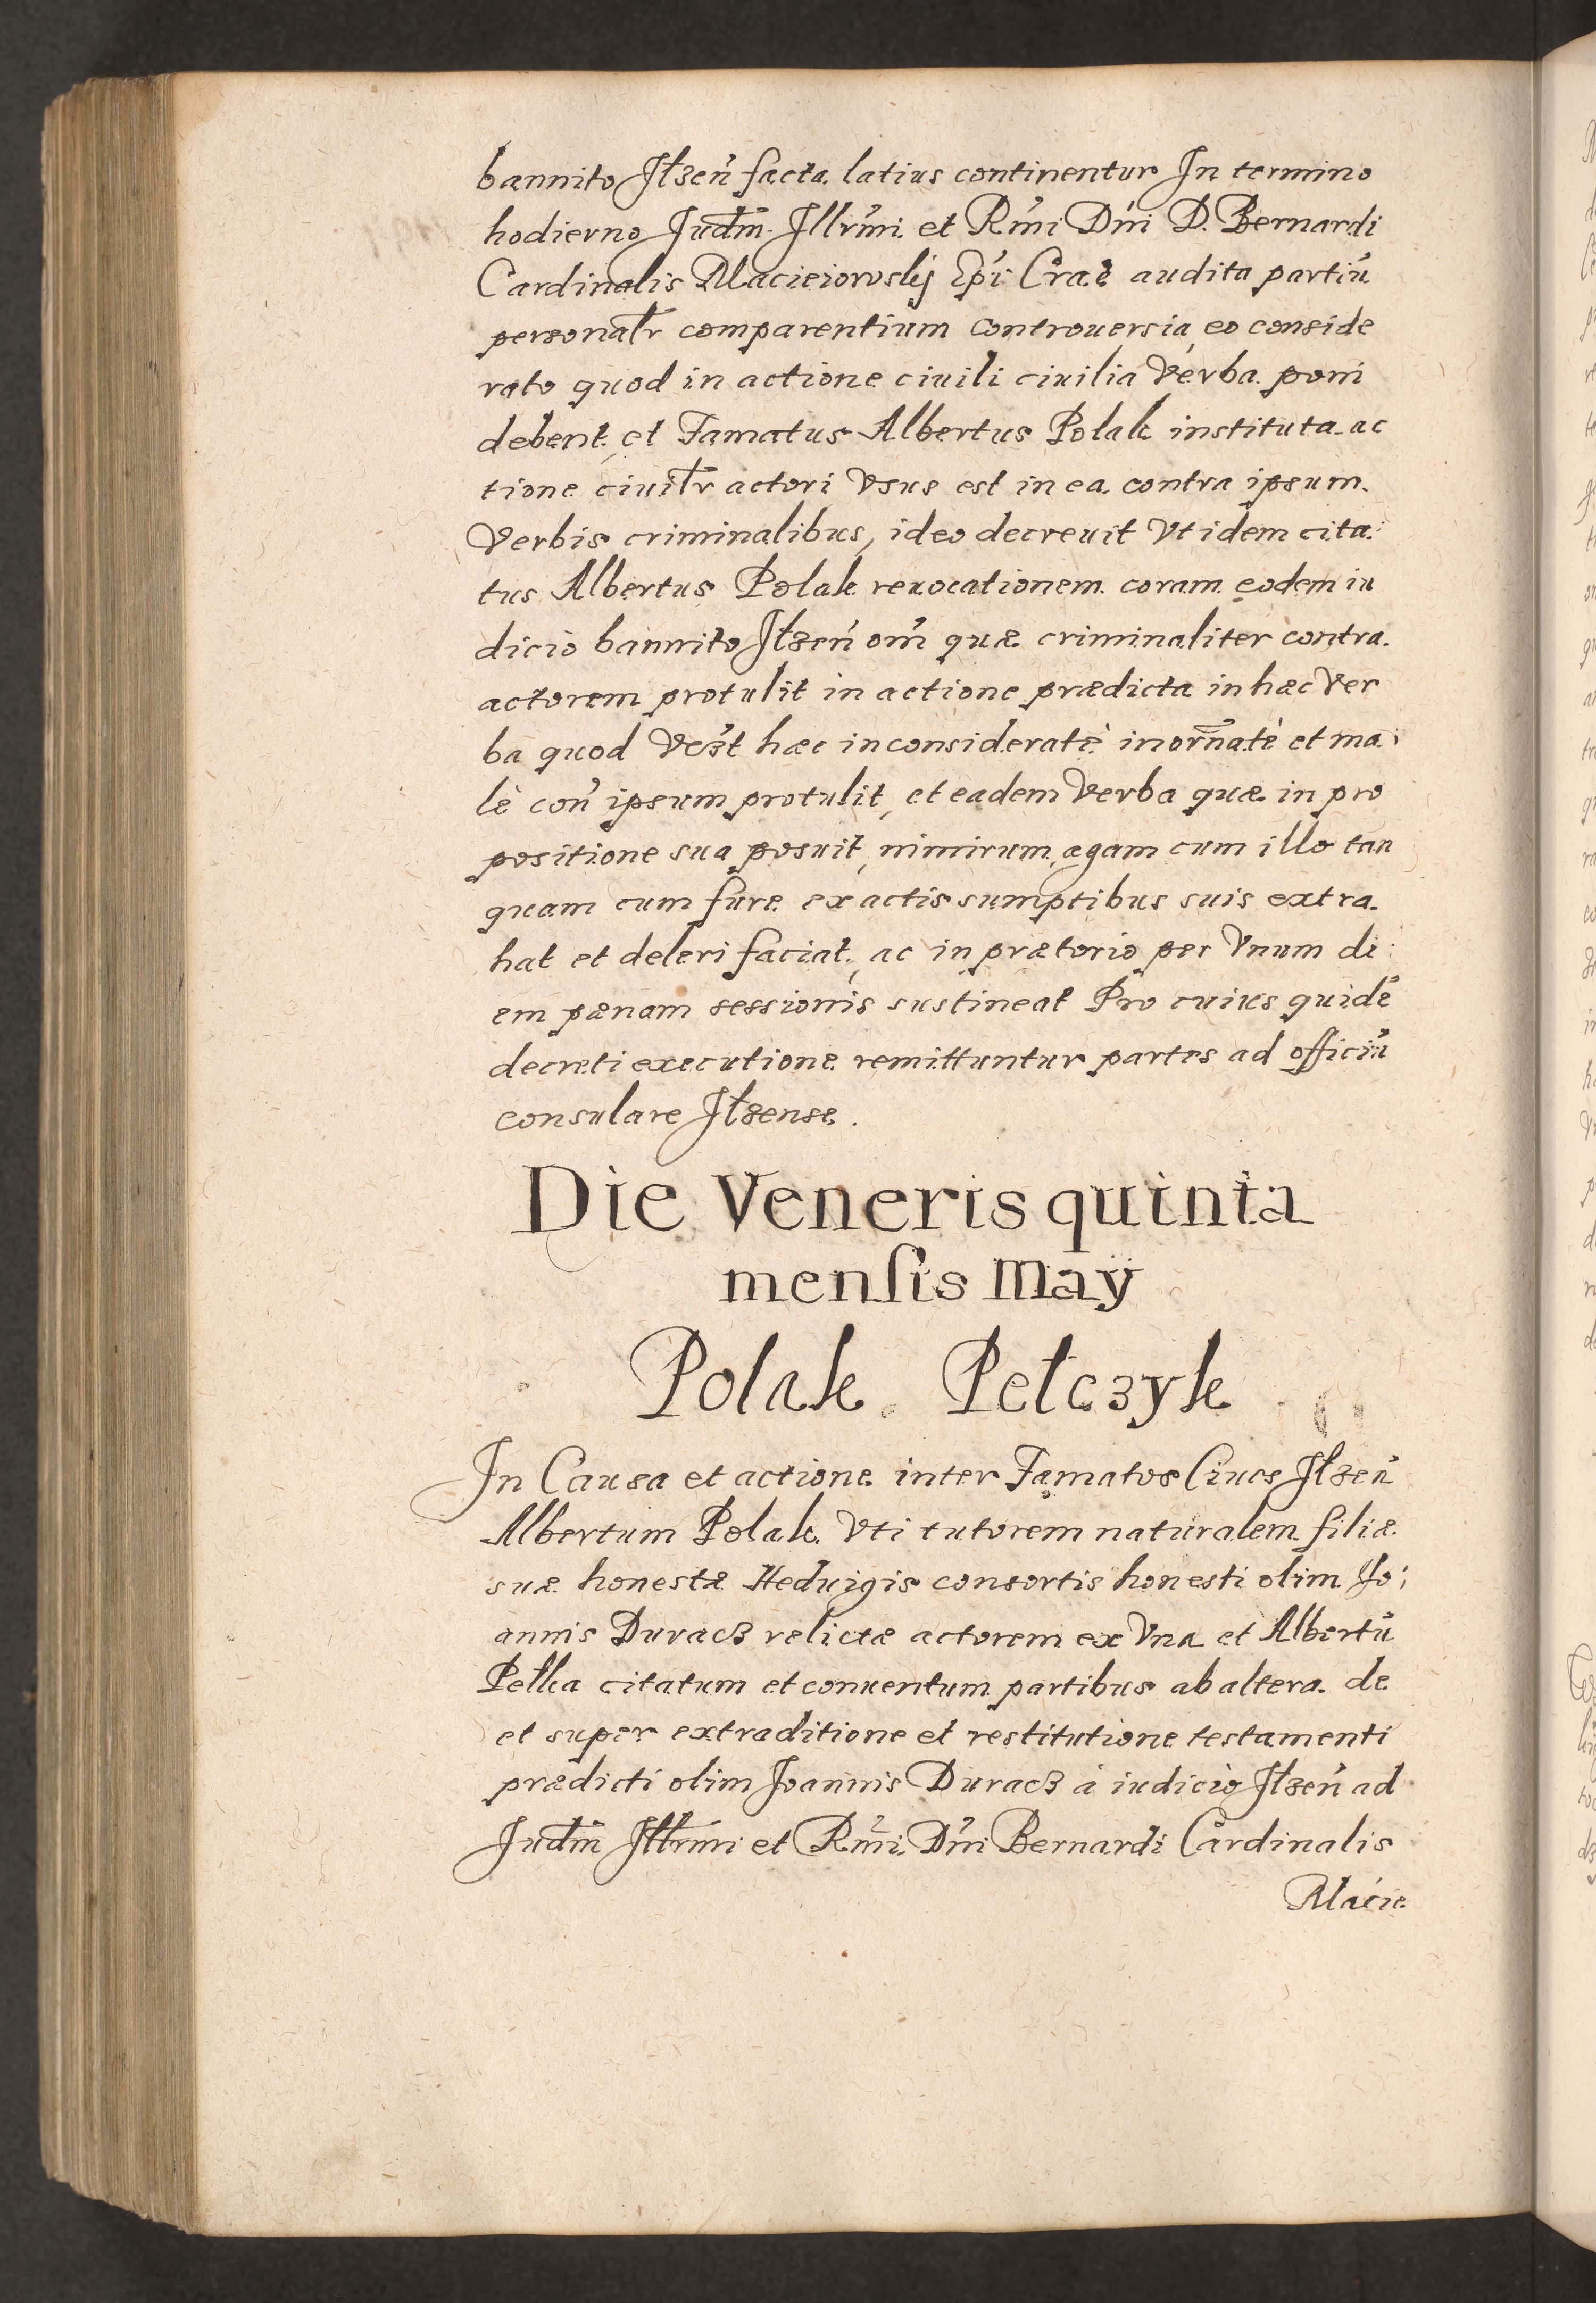 bannito Jłzen̄ facta latius continentur Jn termino
hodierno Judm̄ Jllrmi et Rm̄i Dn̄i D. Bernardi
Cardinalis Macieiowskij Ep̄i Crac̄ audita partiū
personalr̄ comparentium controuersia, eo conside
rato quod in actione ciuili ciuilia verba poni
debent, et Famatus Albertus Polak instituta ac
tione ciuilr̄ actori vsus est in ea contra ipsum
verbis criminalibus, ideo decreuit vt idem cita:
tus Albertus Polak reuocationem coram eodem iu
dicio bannito Jłzen̄ om̄ quæ criminaliter contra
actorem protulit in actione prædicta in hæc ver
ba quod hæc inconsideratè inornatè et ma
lè con̄ ipsum protulit, et eadem verba quæ in pro
positione sua posuit, nimirum, agam cum illo tan
quam cum fure ex actis sumptibus suis extra
hat et deleri faciat, ac in prætorio per vnum di:
em pænam sessionis sustineat Pro cuius quidē
decreti executione remittuntur partes ad officiū
consulare Jłzense.
Die Veneris quinta
menſis Maÿ
Polak Pełczyk
Jn Causa et actione inter Famatos Ciues Jłzen̄
Albertum Polak vti tutorem naturalem filiæ
suæ honestæ Heduigis consortis honesti olim Jo:
annis Duracz relictæ actorem ex vna et Albertū
Pełka citatum et conuentum partibus ab altera de
et super extraditione et restitutione testamenti
prædicti olim Joannis Duracz à iudicio Jłzen̄ ad
Judm̄ Jllrmi et Rm̄i Dn̄i Bernardi Cardinalis
Macie